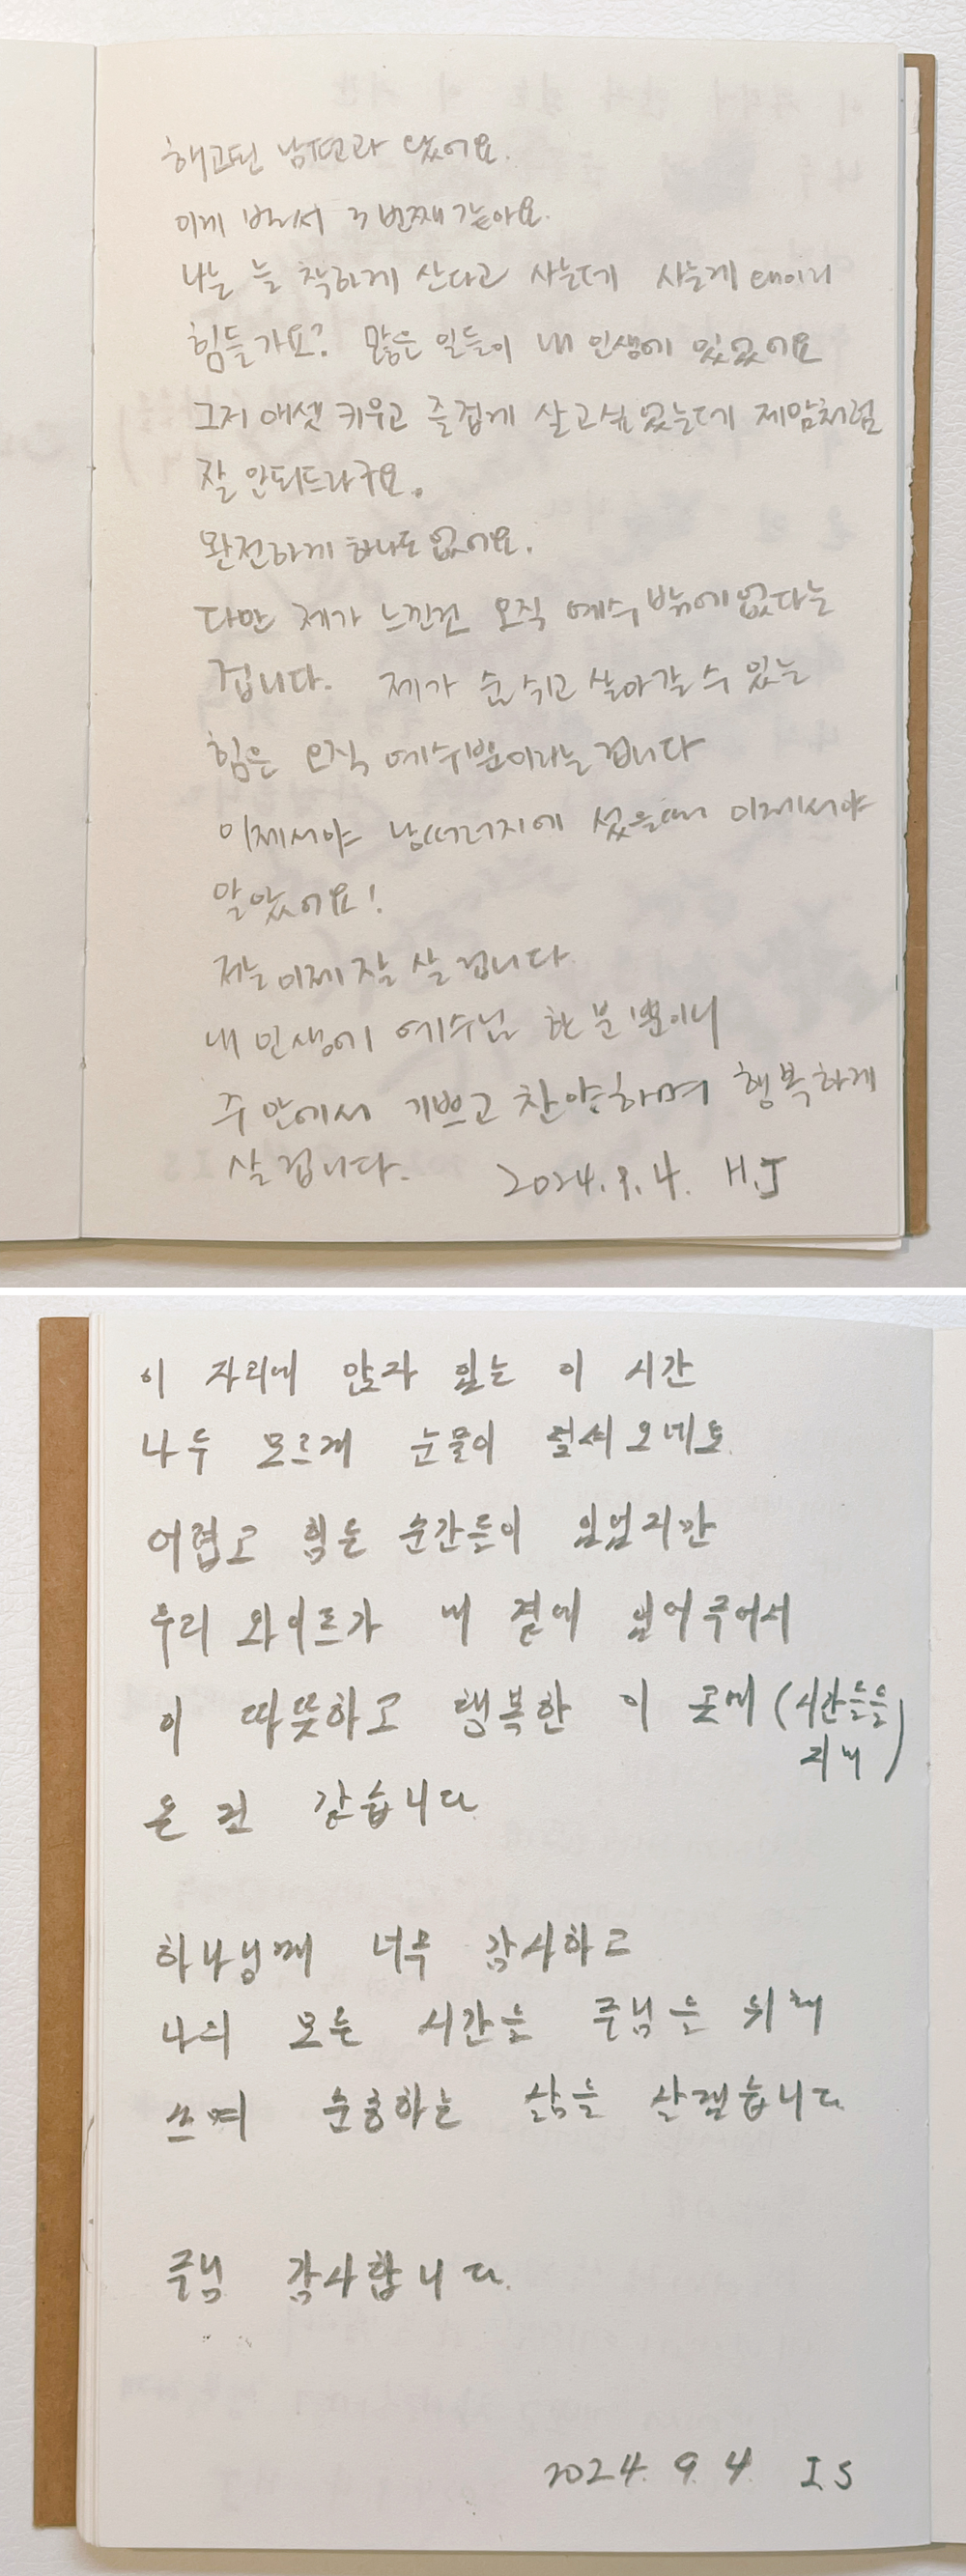 해고된 남편과 왔어요.
이게 벌써 3번째 같아요.
나는 늘 착하게 산다고 사는데 사는게 왜이리
힘들가요? 많은 일들이 내 인생에 있었어요
그저 애셋 키우고 즐겁게 살고싶었는데 제맘처럼
잘 안되드라구요.
완전하게 하나도 없어요.
다만 제가 느낀건 오직 예수밖에 없다는
겁니다. 제가 숨쉬고 살아갈 수 있는
힘은 오직 예수뿐이라는 겁니다
이제서야 낭떠러지에 섰을때 이제서야
알았어요!
저는 이제 잘 살 겁니다
내 인생에 예수님 한 분 뿐이니
주 안에서 기쁘고 찬양하며 행복하게
살 겁니다. 2024.9.4. H.J
이 자리에 앉자 있는 이 시간
나두 모르게 눈물이 오네요
어렵고 힘든 순간들이 있었지만
우리 와이프가 내 곁에 있어주어서
이 따뜻하고 행복한 이 곳에 (시간들을
지내)
온 건 같습니다
하나님께 너무 감사하고
나의 모든 시간을 주님을 위해
쓰며 순종하는 삶을 살겠습니다
주님 감사합니다.
2024. 9. 4 I.S